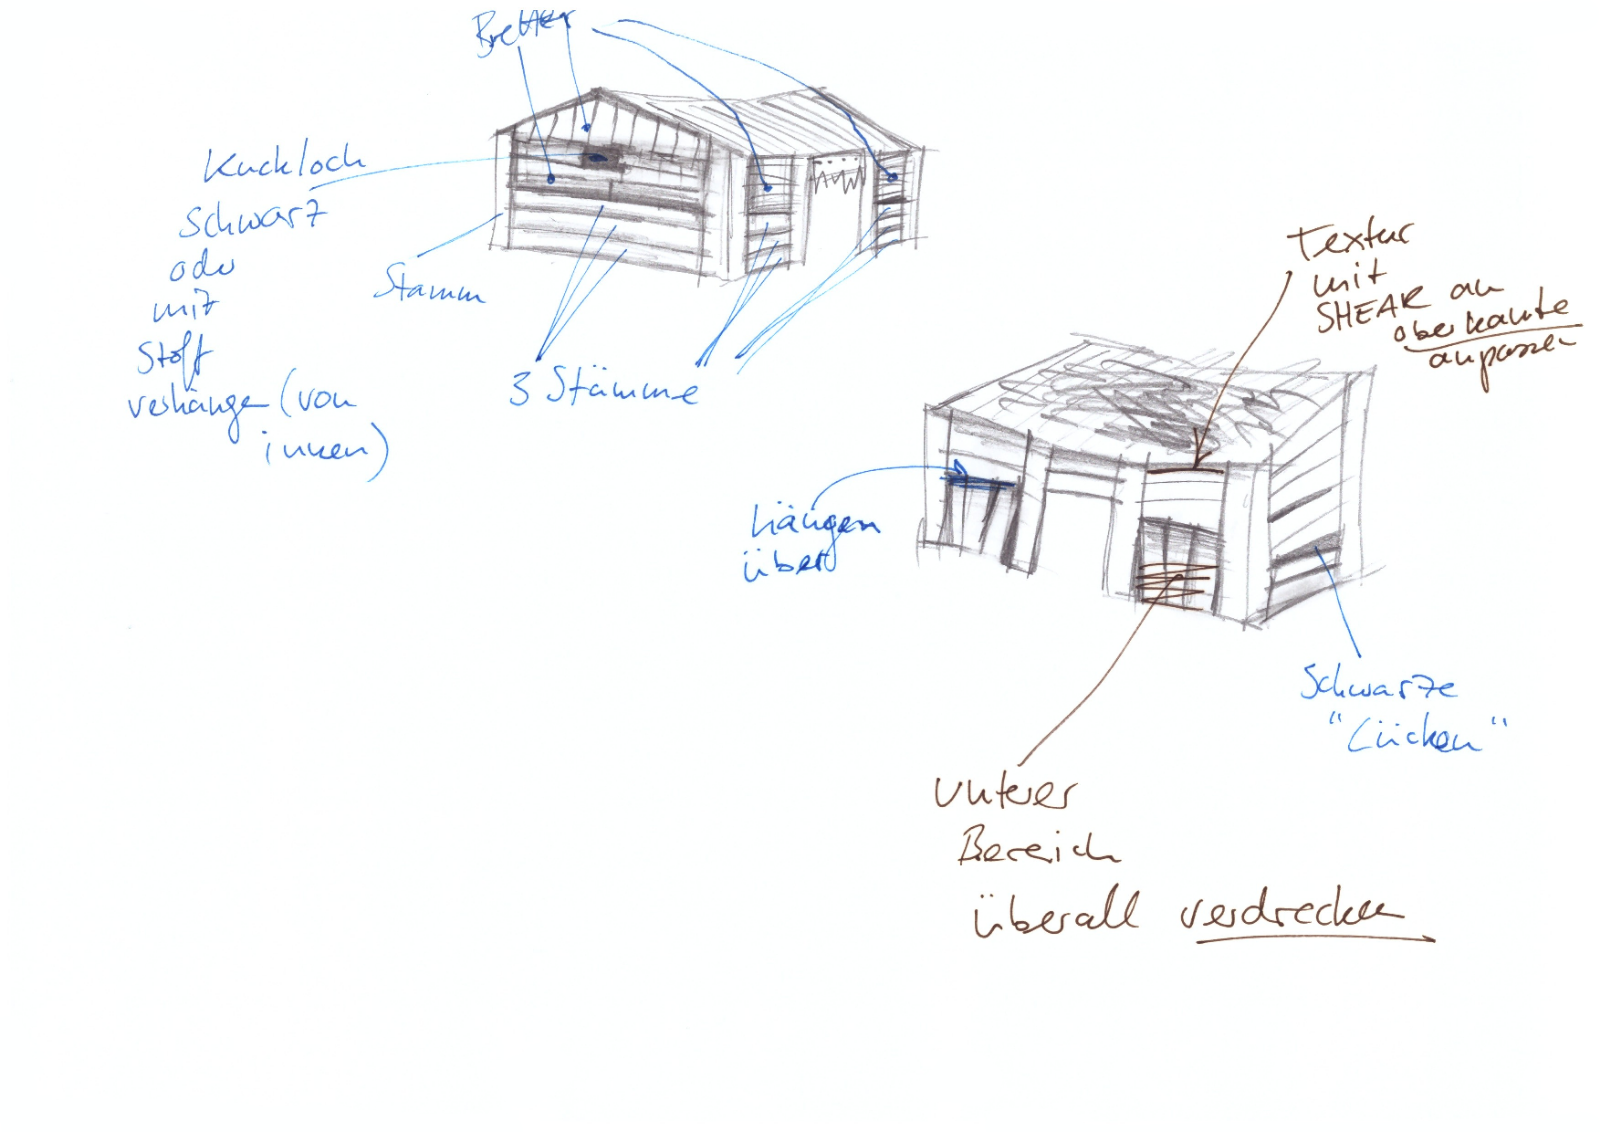 Bretter
Kuckloch
schwarz
oder
mit
Stoff
verhängen (von
innen)
Stamm
3 Stämme
Textur
mit
SHEAR an
oberkante
anpassen
hängen
über
Schwarze
"Lücken"
unterer
Bereich
überall verdrecken